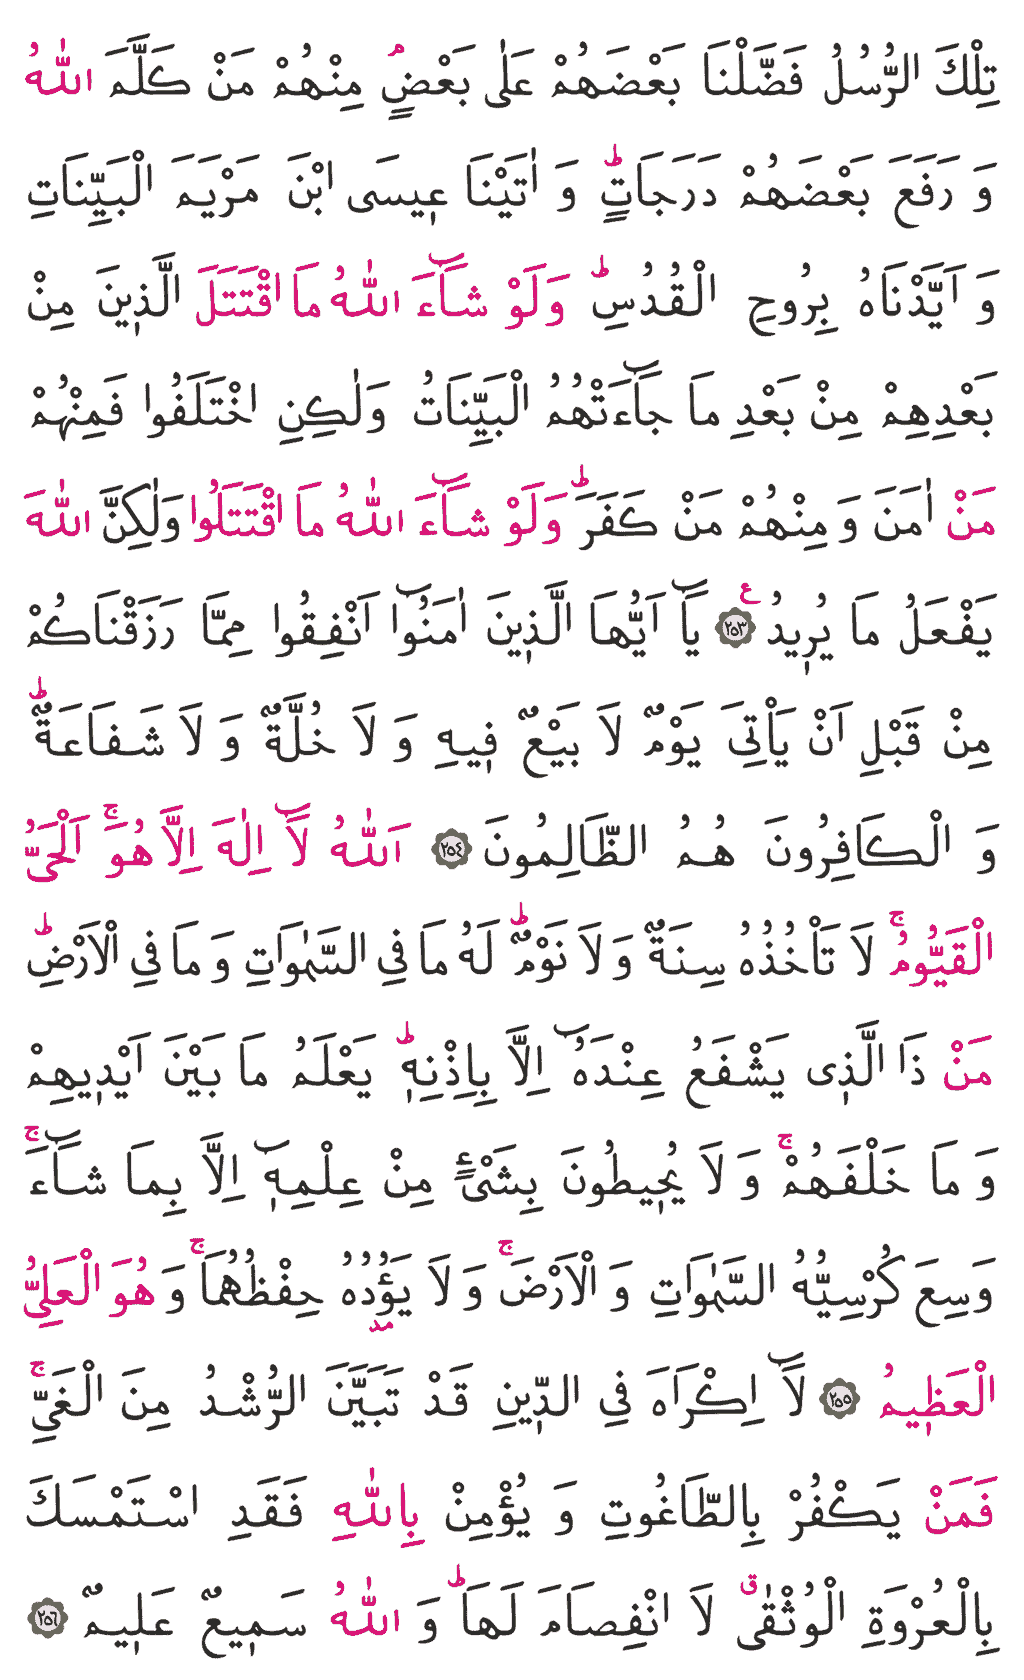 تِلْكَ الرُّسُلُ فَضَّلْنَا بَعْضَهُمْ عَلٰى بَعْضٍۢ مِنْهُمْ مَنْ كَلَّمَ اللّٰهُ
وَ رَفَعَ بَعْضَهُمْ دَرَجَاتٍۜ وَ اٰتَيْنَا عٖيسَى ابْنَ مَرْيَمَ الْبَيِّنَاتِ
وَ اَيَّدْنَاهُ بِرُوحِ الْقُدُسِۜ وَلَوْ شَٓاءَ اللّٰهُ مَا اقْتَتَلَ الَّذٖينَ مِنْ
بَعْدِهِمْ مِنْ بَعْدِ مَا جَٓاءَتْهُمُ الْبَيِّنَاتُ وَلٰكِنِ اخْتَلَفُوا فَمِنْهُمْ
مَنْ اٰمَنَ وَ مِنْهُمْ مَنْ كَفَرَۜ وَلَوْ شَٓاءَ اللّٰهُ مَا اقْتَتَلُوا وَلٰكِنَّ اللّٰهَ
يَفْعَلُ مَا يُرٖيدُ ع ﴿٢٥٣﴾ يَٓا اَيُّهَا الَّذٖينَ اٰمَنُٓوا اَنْفِقُوا مِمَّا رَزَقْنَاكُمْ
مِنْ قَبْلِ اَنْ يَأْتِىَ يَوْمٌ لَا بَيْعٌ فٖيهِ وَ لَا خُلَّةٌ وَ لَا شَفَاعَةٌۜ
وَ الْكَافِرُونَ هُمُ الظَّالِمُونَ ﴿٢٥٤﴾ اَللّٰهُ لَٓا اِلٰهَ اِلَّا هُوَۚ اَلْحَىُّ
الْقَيُّومُۚ لَا تَأْخُذُهُ سِنَةٌ وَ لَا نَوْمٌۜ لَهُ مَا فِى السَّمٰوَاتِ وَ مَا فِى الْاَرْضِۜ
مَنْ ذَا الَّذٖى يَشْفَعُ عِنْدَهُٓ اِلَّا بِاِذْنِهٖۜ يَعْلَمُ مَا بَيْنَ اَيْدٖيهِمْ
وَ مَا خَلْفَهُمْۚ وَ لَا يُحٖيطُونَ بِشَىْءٍ مِنْ عِلْمِهٖٓ اِلَّا بِمَا شَٓاءَۚ
وَسِعَ كُرْسِيُّهُ السَّمٰوَاتِ وَ الْاَرْضَۚ وَ لَا يَؤُ۫دُهُ حِفْظُهُمَاۚ وَ هُوَ الْعَلِىُّ
الْعَظٖيمُ ﴿٢٥٥﴾ لَٓا اِكْرَاهَ فِى الدّٖينِ قَدْ تَبَيَّنَ الرُّشْدُ مِنَ الْغَىِّۚ
فَمَنْ يَكْفُرْ بِالطَّاغُوتِ وَ يُؤْمِنْ بِاللّٰهِ فَقَدِ اسْتَمْسَكَ
بِالْعُرْوَةِ الْوُثْقٰىۗ لَا انْفِصَامَ لَهَاۜ وَ اللّٰهُ سَمٖيعٌ عَلٖيمٌ ﴿٢٥٦﴾